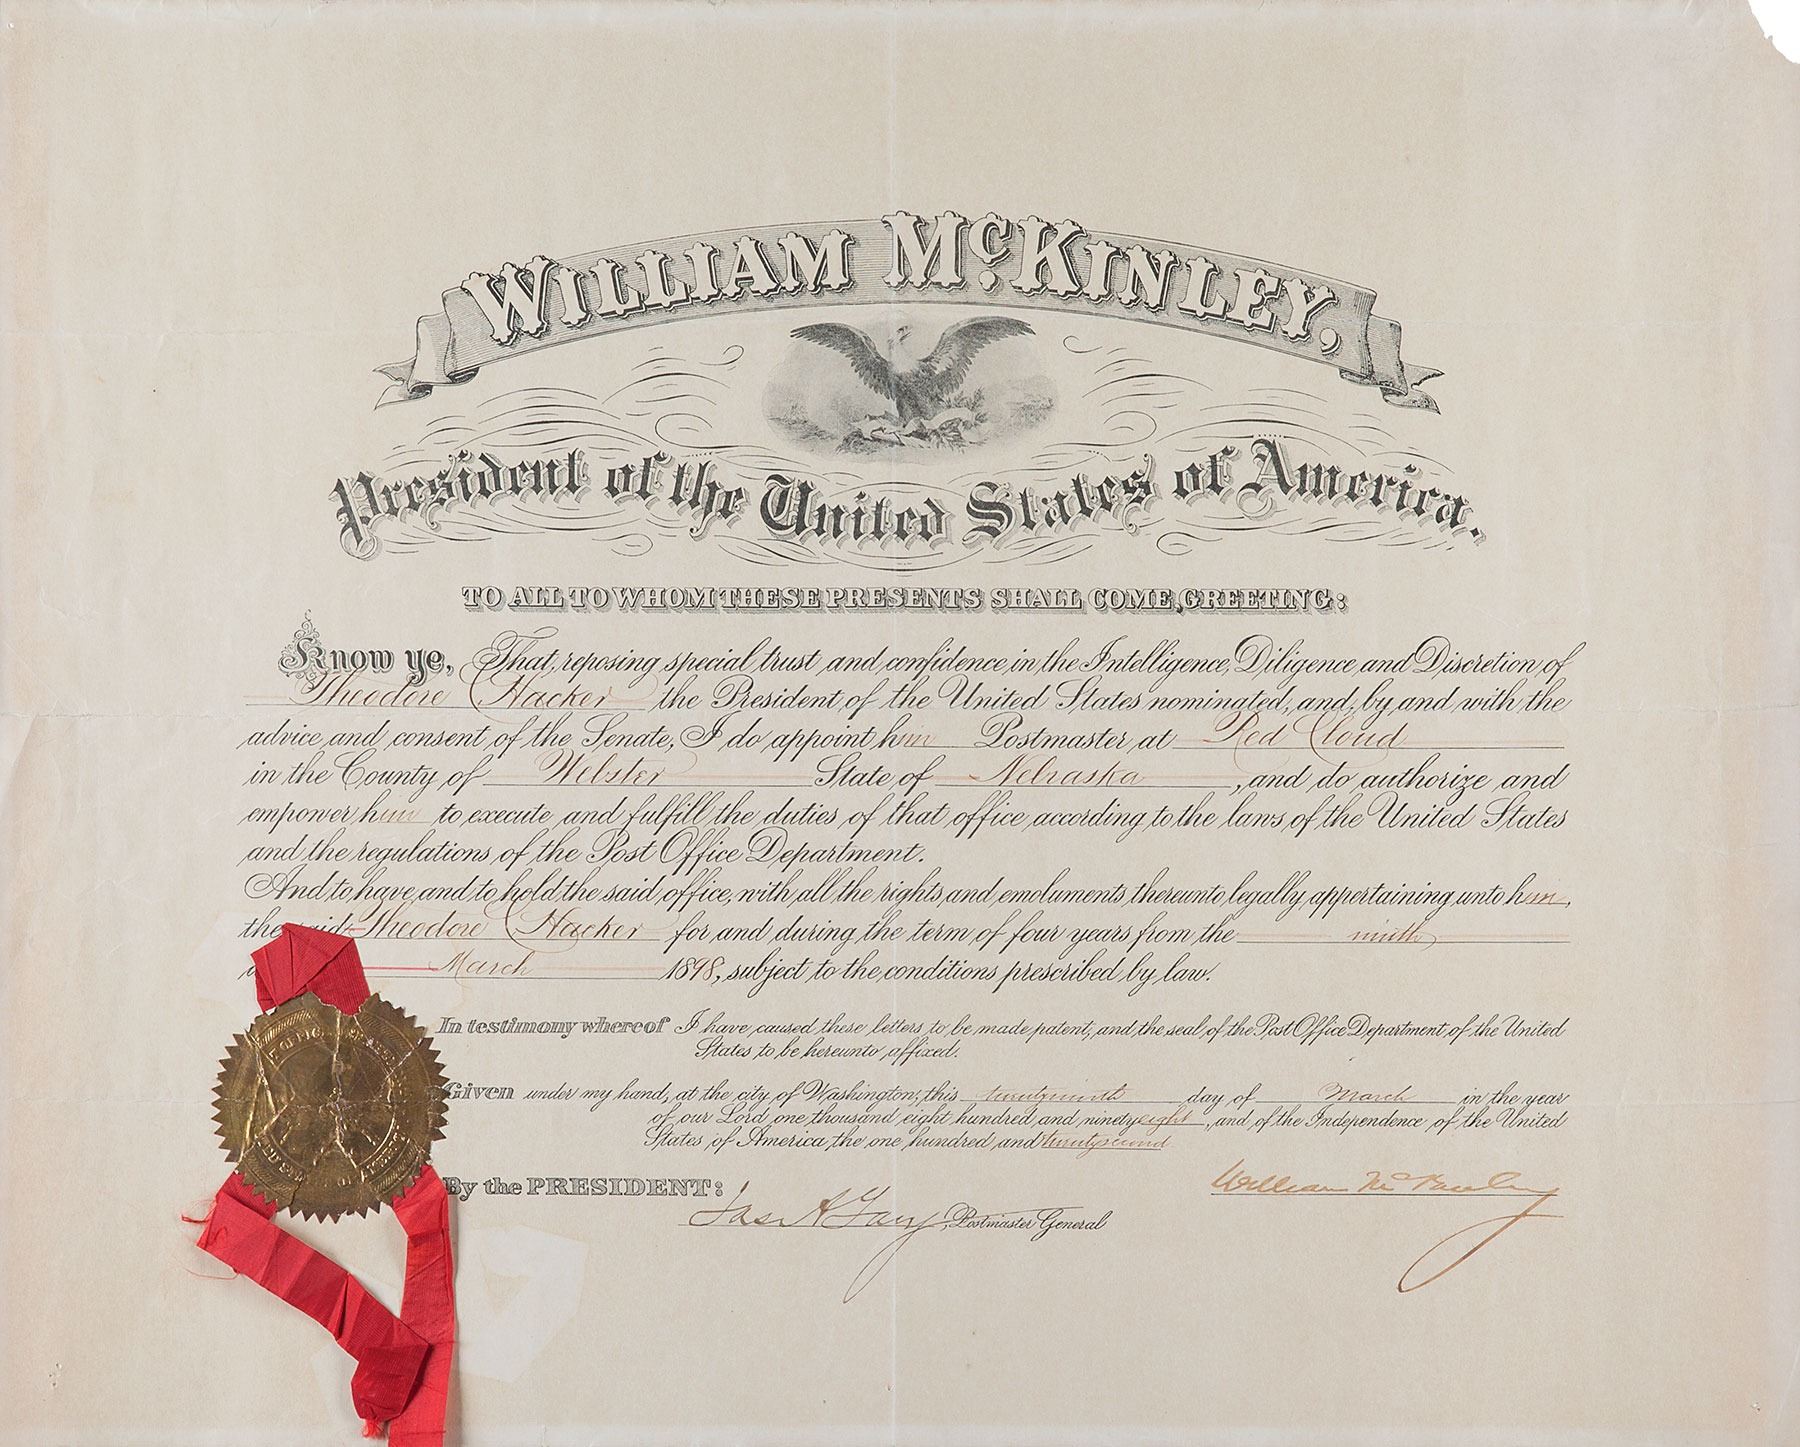 WILLIAM McKINLEY,
President of the United States of America.
TO ALL TO WHOM THESE PRESENTS SHALL COME, GREETING:
Know ye, That, reposing special trust and confidence in the Intelligence, Diligence and Discretion of
Theodore Hacker the President of the United States nominated, and, by and with the
advice and consent of the Senate, I do appoint him Postmaster at Red Cloud
in the County of Webster State of Nebraska, and do authorize and
empower him to execute and fulfill the duties of that office according to the laws of the United States
and the regulations of the Post Office Department.
And to have and to hold the said office, with all the rights and emoluments thereunto legally appertaining unto him,
the said Theodore Hacker for and during the term of four years from the ninth
March 1898, subject to the conditions prescribed by law.
In testimony whereof I have caused these letters to be made patent, and the seal of the Post Office Department of the United
States to be hereunto affixed.
Given under my hand, at the city of Washington, this twentyninth day of March in the year
of our Lord one thousand eight hundred and ninetyeight, and of the Independence of the United
States of America the one hundred and twentysecond
By the PRESIDENT:
William McKinley
Jas A Gary, Postmaster General